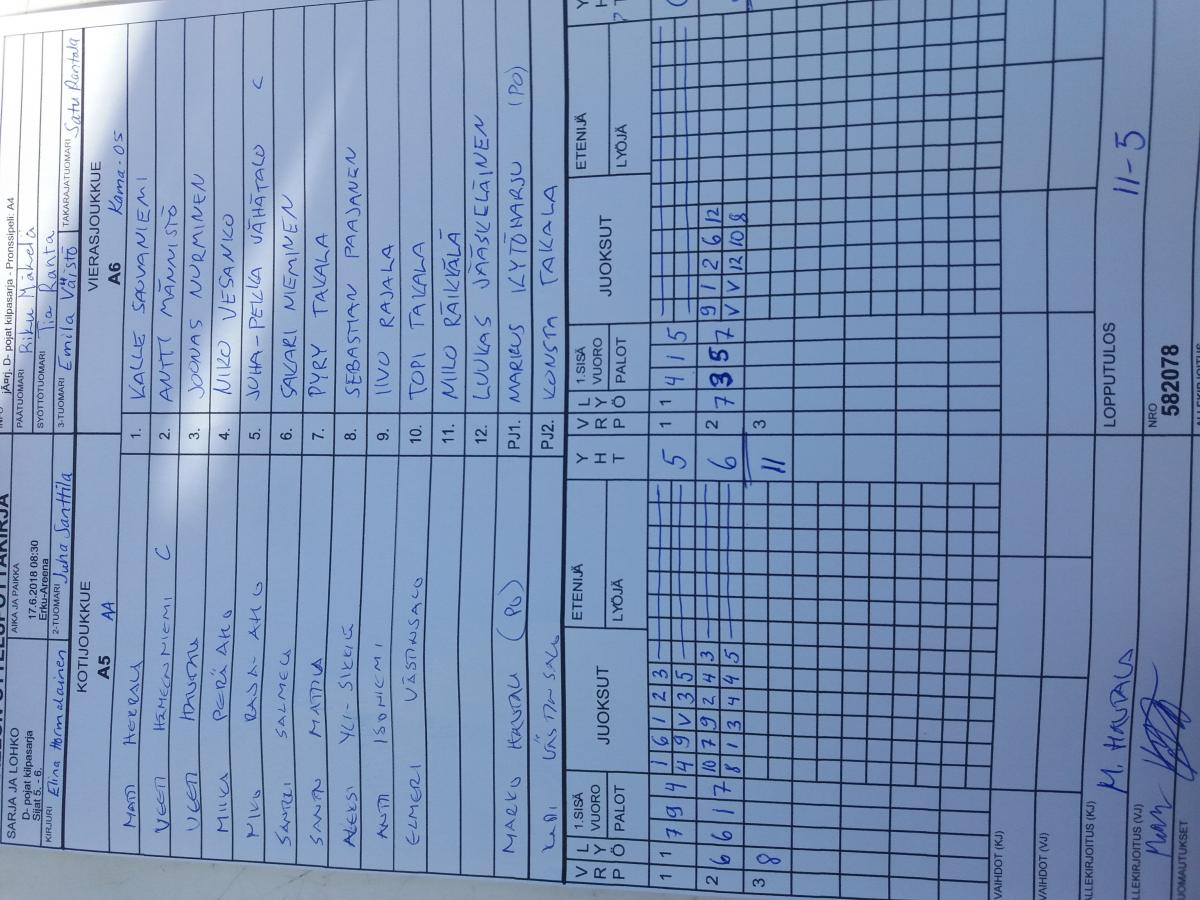 SARJA JA LOHKO
D- pojat kilpasarja
Sijat 5. - 6.
AIKA JA PAIKKA
17.6.2018 08:30
Erku-Areena
jÄ¤rj. D- pojat kilpasarja - Pronssipeli: A4
PÄÄTUOMARI Riku Mäkelä
SYÖTTÖTUOMARI Tia Ranta
KIRJURI Elina Hormalainen
2-TUOMARI Juha Santtila
3-TUOMARI Emila Väistö
TAKARAJATUOMARI Satu Rantala
KOTIJOUKKUE
A5 AA
VIERASJOUKKUE
A6 Kama-05
MATTI HERRALA 1. KALLE SAUVANIEMI
VEETI HÄMEENNIEMI C 2. ANTTI MÄNNISTÖ
VEETI HAUTALA 3. JOONAS NURMINEN
MIIKA PERÄAHO 4. NIKO VESANKO
MIKO RAJA-AHO 5. JUHA-PEKKA VÄHÄTALO C
SANTERI SALMELA 6. SAKARI NIEMINEN
SANTTU MATTILA 7. PYRY TAKALA
ALEKSI YLI-SIKKILÄ 8. SEBASTIAN PAAJANEN
ANTTI ISONIEMI 9. IIVO RAJALA
ELMERI VÄSTINSALO 10. TOPI TAKALA
11. MILO RÄIKKÄLÄ
12. LUUKAS JÄÄSKELÄINEN
MARKO HAUTALA (PO) PJ1. MARKUS KYTÖHARJU (PO)
VÄSTINSALO PJ2. KONSTA TAKALA
V R P L Y Ö 1.SISÄ VUORO PALOT JUOKSUT ETENIJÄ LYÖJÄ Y H T V R P L Y Ö 1.SISÄ VUORO PALOT JUOKSUT ETENIJÄ LYÖJÄ Y H
1 1 7 9 4 1 6 1 2 3 5 1 1 4 1 5
4 9 V 3 5
2 6 6 1 7 10 7 9 2 4 3 6 2 7 3 5 7 9 1 2 6 12
8 1 3 4 4 5 V V 12 10 8
3 8 11 3
VAIHDOT (KJ)
VAIHDOT (VJ)
ALLEKIRJOITUS (KJ) M. HAUTALA
LOPPUTULOS 11-5
ALLEKIRJOITUS (VJ)
NRO
582078